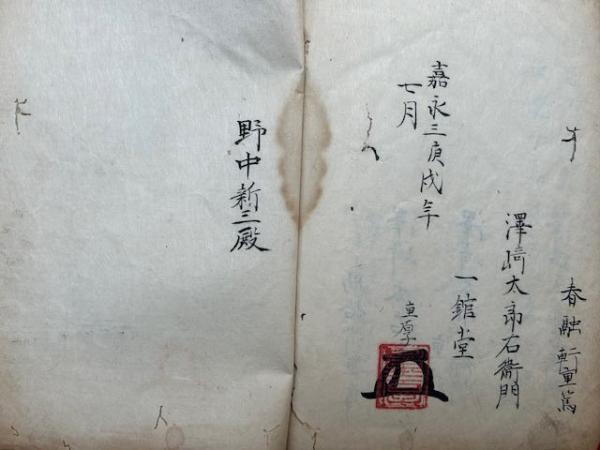 春融軒重篤
澤﨑太郎右衛門
一館堂
重厚
嘉永三庚戌年
七月
野中新三殿